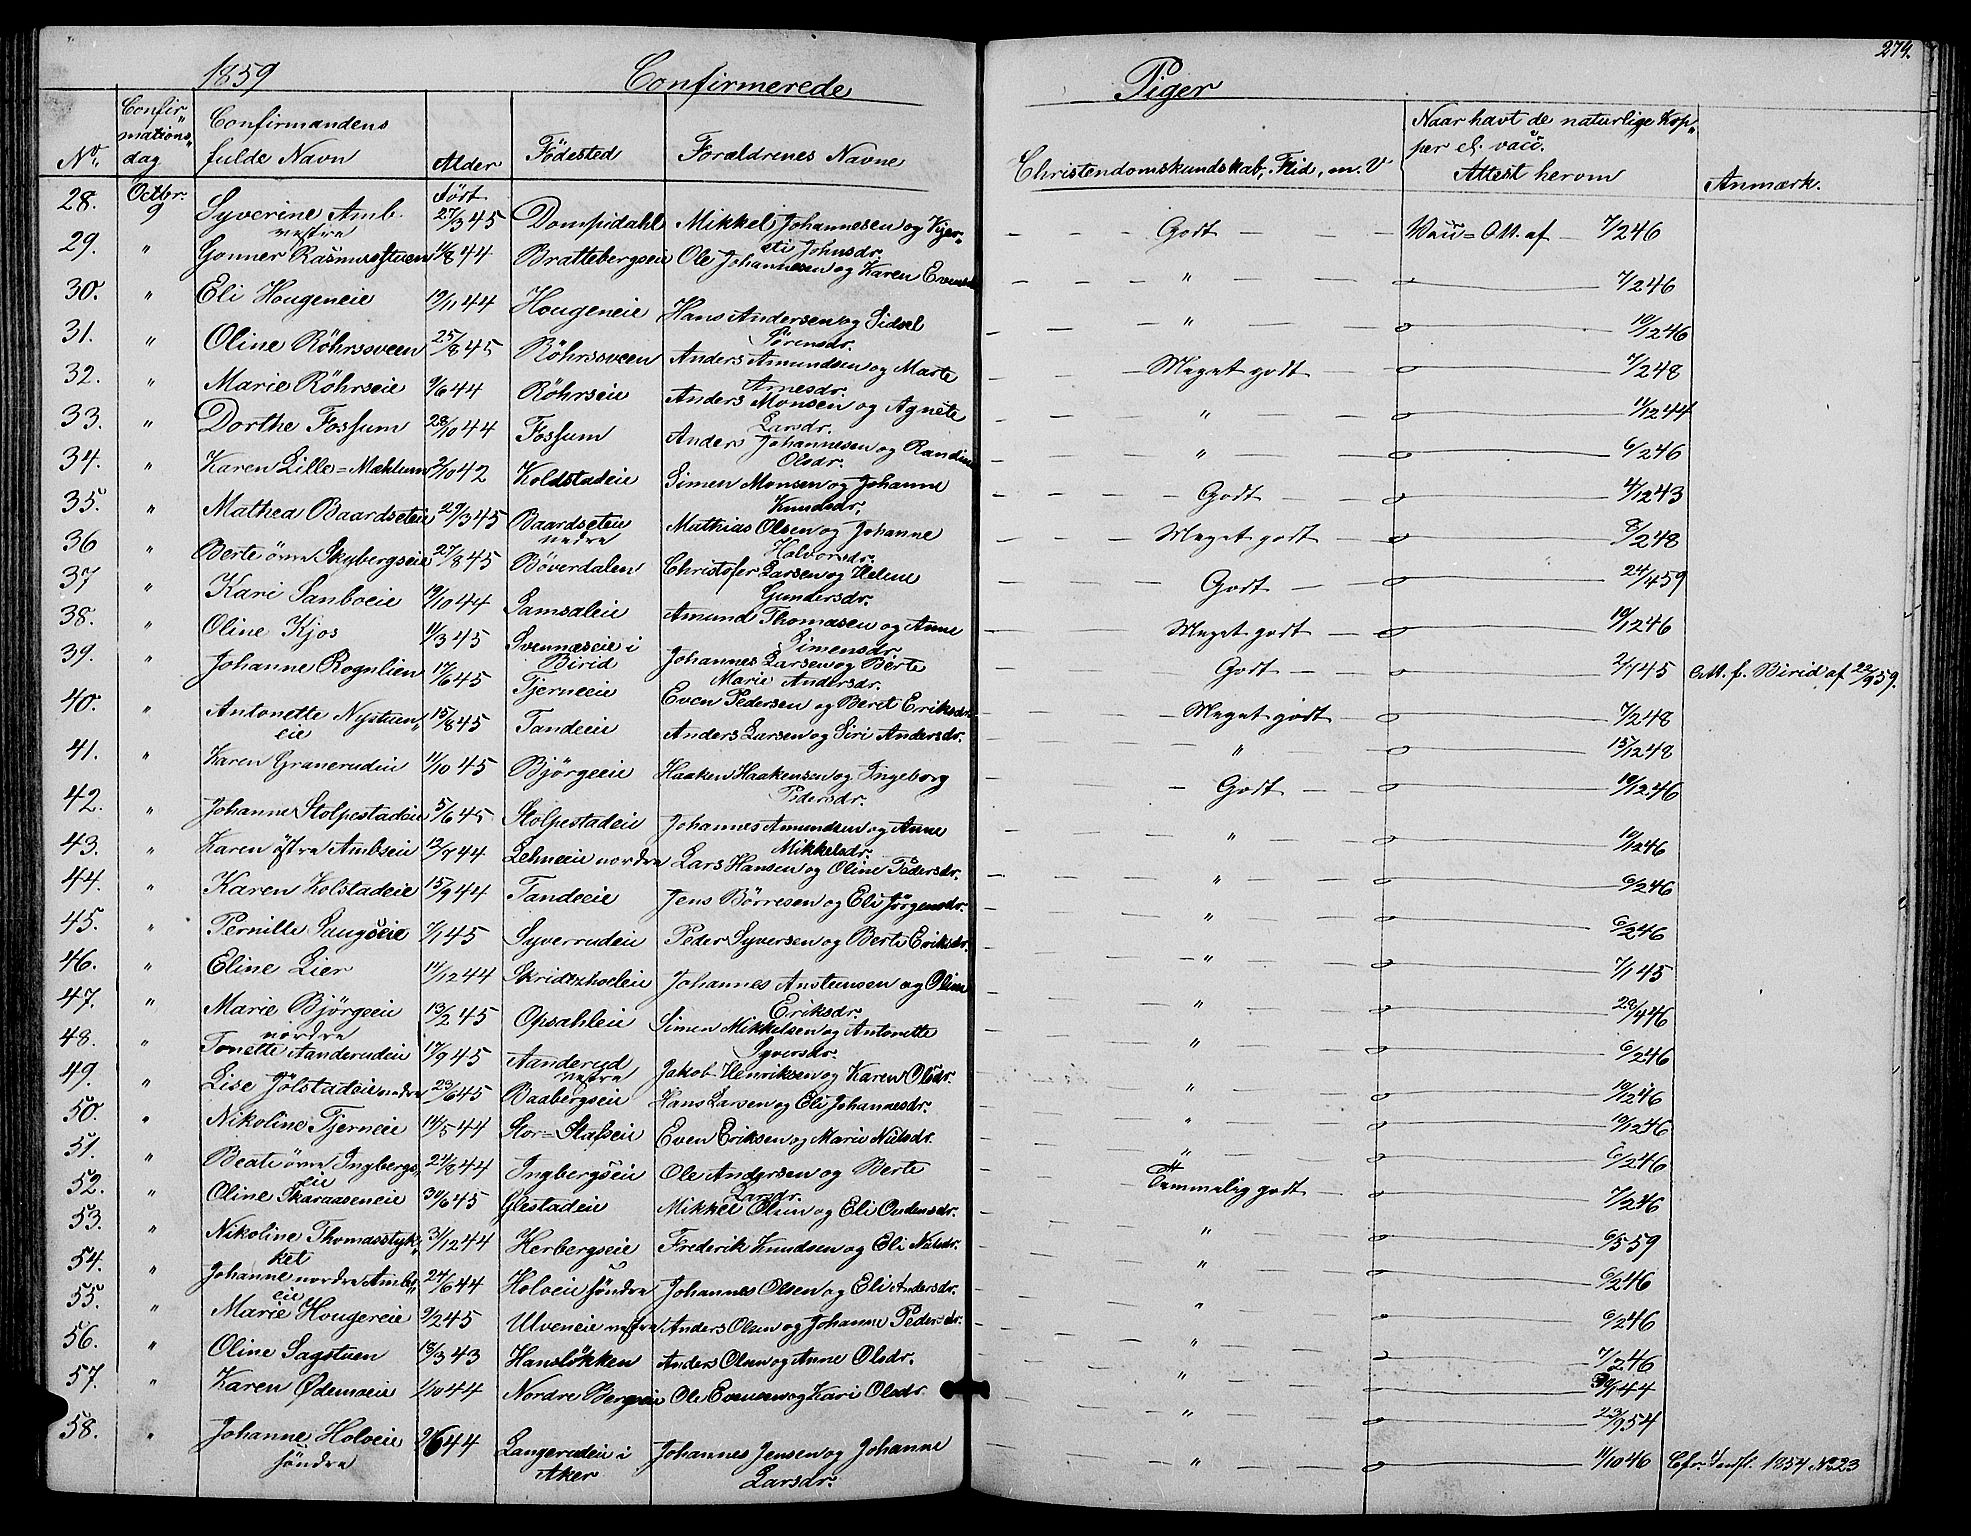 274.
1859 Confirmerede Piger
No. Confir„ mations„ dag Confirmandens fulde Navn Alder Födested Forældrenes Navne Christendomskundskab, Flid, m. V Naar havt de naturlige Kop„ per el. vacc. Attest herom Anmærk.
28. Octbr. 9 Syverine Amb. vestre Født 27/3 45 Dompidahl Mikkel Johannesen og Kjer„ sti Johnsdr. Godt Vacc = Att. af 7/2 46
29. " Gonner Rasmusstuen 1/8 44 Brattebergseie Ole Johannesen og Karen " " 7/2 46
30. " Eli Hougeneie 19/11 44 Hougeneie Hans Andersen og Sidsel Sörensdr. " " 10/12 46
31. " Oline Röhrssveen 25/8 45 Röhrssveen Anders Amundsen og Marte Arnesdr. Meget godt 7/2 48
32. " Marie Röhrseie 9/6 44 Röhrseie Anders Monsen og Agnete Larsdr. " 11/12 44
33. " Dorthe Fossum 28/10 44 Fossum Anders Johannesen og Randine Olsdr. " 6/2 46
34. " Karen Lille=Mæhlum 2/10 42 Koldstadeie Simen Monsen og Johanne Knudsdr. Godt 4/12 43
35. " Mathea Baardseteie 29/3 45 Baardseteie nedre Mathias Olsen og Johanne Halvorsdr. Meget godt 8/2 48
36 " Berte övre Skybergseie 27/8 45 Böverdalen Christofer Larsen og Helene Gundersdr. Godt 24/4 59
37 " Kari Sanboeie 19/10 44 Samsaleie Amund Thomasen og Anne Simensdr. Meget godt 19/12 46
38. " Oline Kjos 11/3 45 Svennæseie i Birid Johannes Larsen og Berte Marie Andersdr. Godt 2/7 45 Att. f. Birid af 22/9 59.
39. " Johanne Rognlien 17/6 45 Tjerneeie Even Pedersen og Beret Eriksdr. Meget godt 7/2 48
40. " Antonette Nystuen„ eie 15/8 45 Tandeeie Anders Larsen og Siri Andersdr. " 15/12 48
41. " Karen Granerudeie 11/10 45 Bjørgeeie Haaken Haakensen og Ingeborg Pedersdr. Godt 19/12 46
42. " Johanne Stolpestadeie 5/6 45 Stolpestadeie Johannes Amundsen og Anne Mikkelsdr. " 19/12 46
43. " Karen östre Ambseie 13/7 44 Lehneeie nordre Lars Hansen og Oline Pedersdr. " 6/2 46
44. " Karen Kolstadeie 15/9 44 Tandeeie Jens Börresen og Eli Jörgensdr. " 6/2 46
45. " Pernille Saugseie 7/1 45 Syverrudeie Peder Syversen og Berte Eriksdr. " 7/1 45
46. " Eline Lier 14/12 44 Skridtshoeleie Johannes Anstensen og Oline Eriksdr. " 28/4 46
47. " Marie Bjørgeeie nordre 13/2 45 Opsahleie Simen Mikkelsen og Antonette Syversdr. " 6/2 46
48. " Tonette Aanderudeie 17/9 45 Aanderud nedre Jakob Henriksen og Karen Olsdr. " 19/12 46
49. " Lise Jölstadeie nedre 23/6 45 Baabergseie Hans Larsen og Eli Johannesdr. " 19/12 46
50. " Nikoline Tjerneeie 14/5 44 Stor=Stafseie Even Eriksen og Marie Nielsdr. " 6/2 46
51. " Beate övre Ingbergs„ eie 24/8 44 Ingbergseie Ole Andersen og Berte Larsdr. Temmelig godt 7/2 46
52. " Oline Skaraaseneie 30/6 45 Glestadeie Mikkel Olsen og Eli Oudensdr. " 6/5 59
53. " Nikoline Thomasstyk„ ket 31/12 44 Herbergseie Frederik Knudsen og Eli Nielsdr. " 6/2 46
54. " Johanne nordre Ambs„ eie 24/6 44 Holveie söndre Johannes Olsen og Eli Andersdr. " 6/2 46
55. " Marie Hougereie 9/2 45 Ulveneie Anders Olsen og Johanne Pedersdr. " 7/2 46
56. " Oline Sagstuen 18/3 43 Hanslökken Anders Olsen og Anne Olsdr. " 44
57. " Karen Ødemoeie 1/10 44 Nordre Bergseie Ole Evensen og Kari Olsdr. " 23/9 54
58. " Johanne Holveie söndre 6 44 Langerudeie i Aker Johannes Jensen og Johanne Larsdr. " 11/10 46 Cfr. 1854 No 23